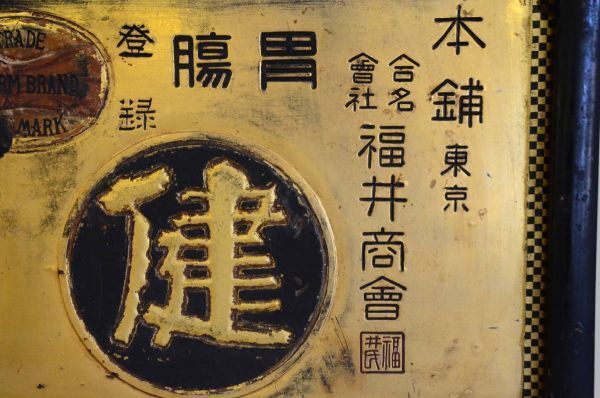 本舗 東京
合名
會社
福井商會
福井
胃腸
登録
健
TRADE
ORM BRAND
MARK